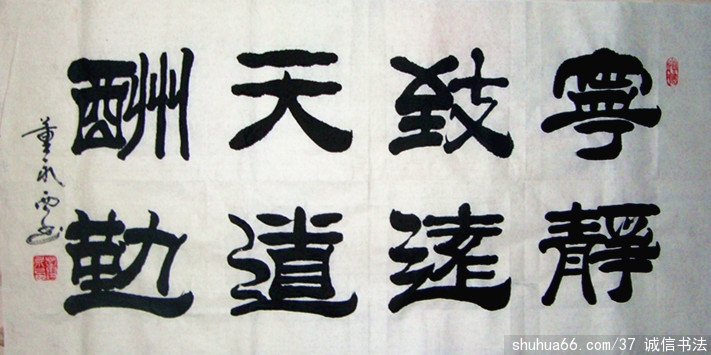 寧靜
致遠
天道
酬勤
shuhua66.com/37 诚信书法